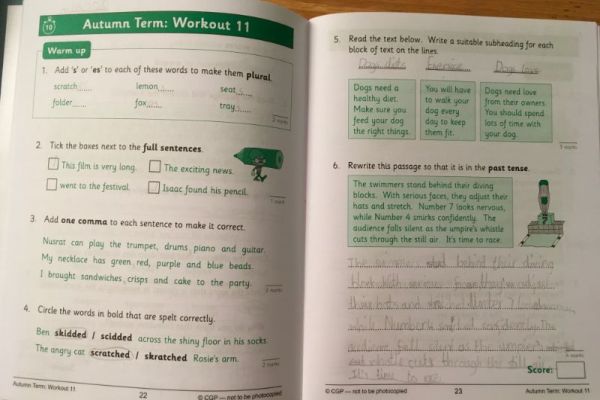 10
Autumn Term: Workout 11
Warm up
1. Add 's' or 'es' to each of these words to make them plural.
scratch...... lemon...... seat......
folder...... fox...... tray......
2 marks
2. Tick the boxes next to the full sentences.
This film is very long. The exciting news.
went to the festival. Isaac found his pencil.
1 mark
3. Add one comma to each sentence to make it correct.
Nusrat can play the trumpet, drums piano and guitar.
My necklace has green red, purple and blue beads.
I brought sandwiches crisps and cake to the party.
4. Circle the words in bold that are spelt correctly.
Ben skidded / scidded across the shiny floor in his socks.
The angry cat scratched / skratched Rosie's arm.
2 marks
Autumn Term: Workout 11
22
© CGP — not to be photocopied
5. Read the text below. Write a suitable subheading for each
block of text on the lines.
Dogs diets Exercise Dogs love
Dogs need a
healthy diet.
Make sure you
feed your dog
the right things.
You will have
to walk your
dog every
day to keep
them fit.
Dogs need love
from their owners.
You should spend
lots of time with
your dog.
3 marks
6. Rewrite this passage so that it is in the past tense.
The swimmers stand behind their diving
blocks. With serious faces, they adjust their
hats and stretch. Number 7 looks nervous,
while Number 4 smirks confidently. The
audience falls silent as the umpire's whistle
cuts through the still air. It's time to race.
The swimmers behind their diving
block with
their hats and
while Number
audience as the
whistle through the still
It's time to
4 marks
Score:
© CGP — not to be photocopied
23
Autumn Term: Workout 11